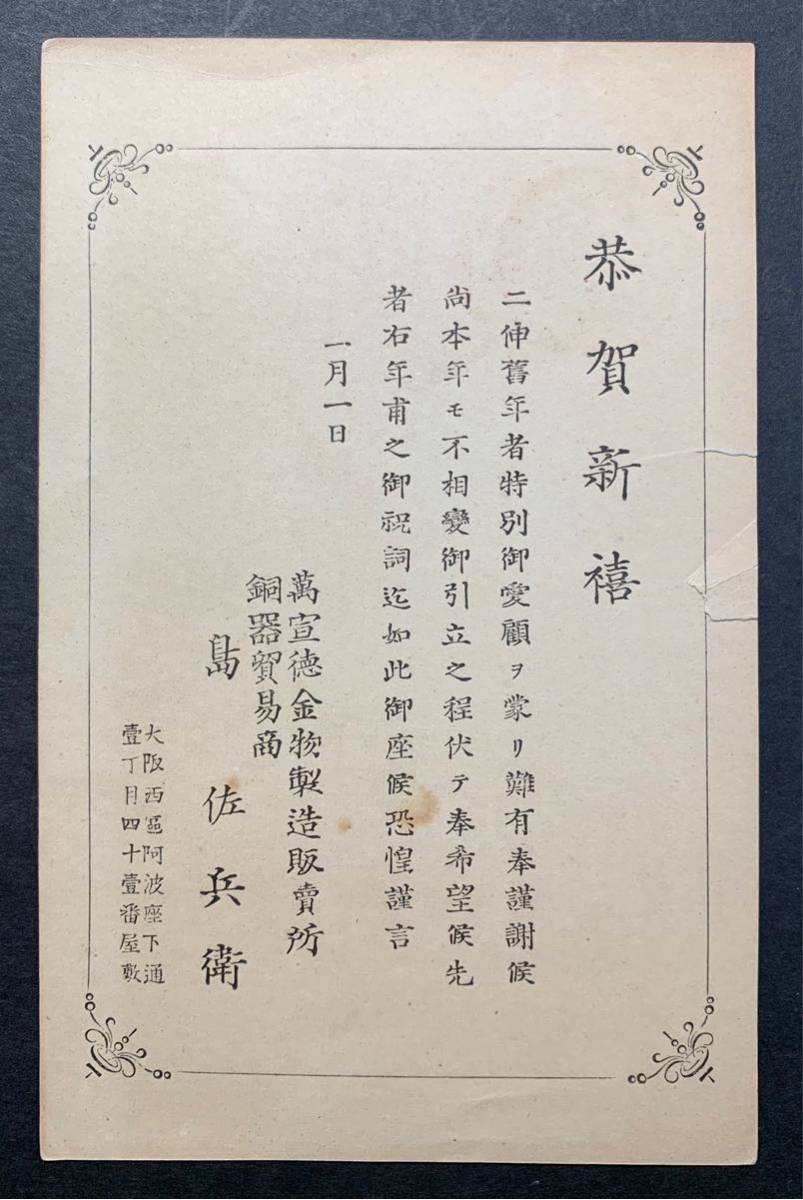 恭賀新禧
二伸舊年者特別御愛顧ヲ蒙リ難有奉謹謝候
尚本年モ不相變御引立之程伏テ奉希望候先
者右年甫之御祝詞迄如此御座候恐惶謹言
一月一日
萬宣德金物製造販賣所
銅器貿易商
島佐兵衛
大阪西區阿波座下通
壹丁目四十壹番屋敷